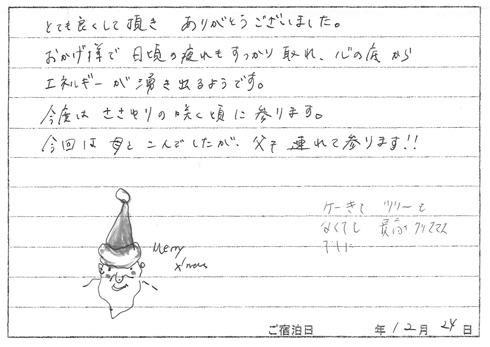 とても良くして頂き ありがとうございました。
おかげ様で 日頃の疲れもすっかり取れ、心の底から
エネルギーが湧き出るようです。
今度は ささゆりの咲く頃に 参ります。
今回は 母と 二人でしたが、父も 連れて参ります!!
ケーキも ツリーも
なくても 最高の クリスマス
Merry
X'mas
ご宿泊日 年 12月 24日